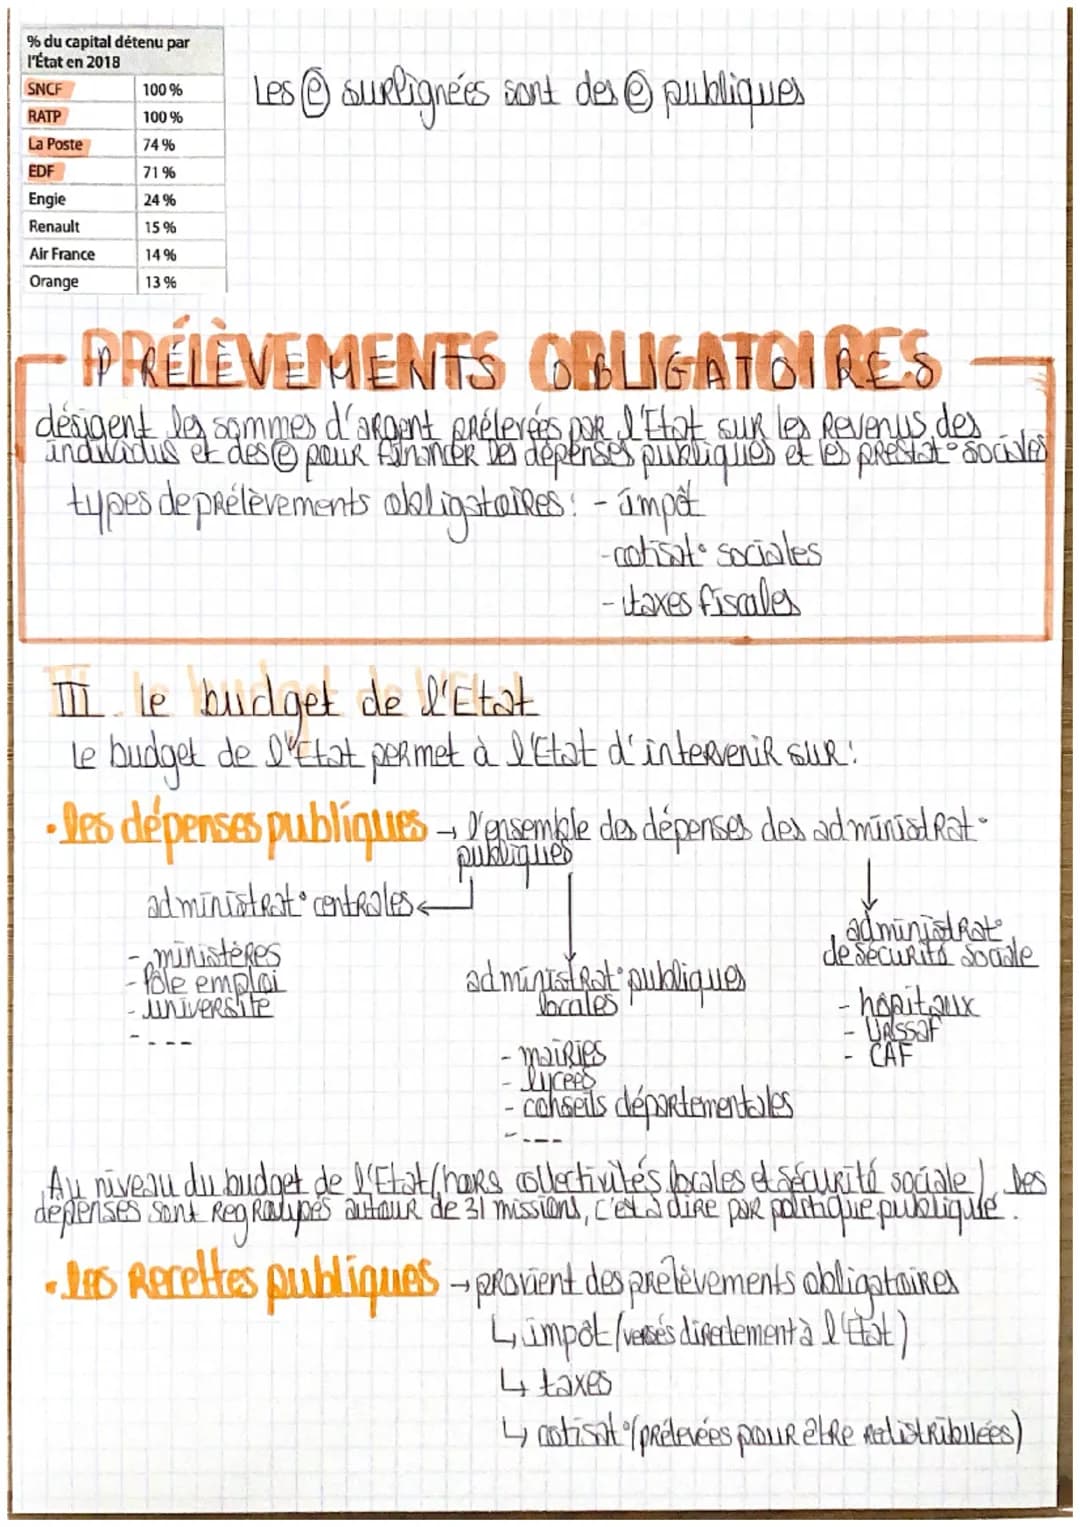 % du capital détenu par
l'État en 2018
SNCF 100 %
RATP 100 %
La Poste 74 %
EDF 71 %
Engie 24 %
Renault 15 %
Air France 14 %
Orange 13 %
Les ⓔ surlignées sont des ⓔ publiques
PRÉLÈVEMENTS OBLIGATOIRES
désigent les sommes d'argent prélevées par l'Etat sur les revenus des
individus et des ⓔ pour financer les dépenses publiques et les prestat° sociales
types de prélèvements obligatoires : - impôt
- cotisat° sociales
- taxes fiscales
III. le budget de l'Etat
Le budget de l'Etat permet à l'Etat d'intervenir sur :
• les dépenses publiques → l'ensemble des dépenses des administrat°
publiques
administrat° centrales ←
- ministères
- Pôle emploi
- université
- ----
administrat° publiques
locales
- mairies
- lycées
- conseils départementales
- ----
administrat°
de sécurité sociale
- hôpitaux
- URSSAF
- CAF
Au niveau du budget de l'Etat (hors collectivités locales et sécurité sociale), les
dépenses sont regroupés autour de 31 missions, c'est à dire par politique publique.
• les recettes publiques → provient des prélèvements obligatoires
↳ impôt (versés directement à l'Etat)
↳ taxes
↳ cotisat° (prélevées pour être redistribuées)